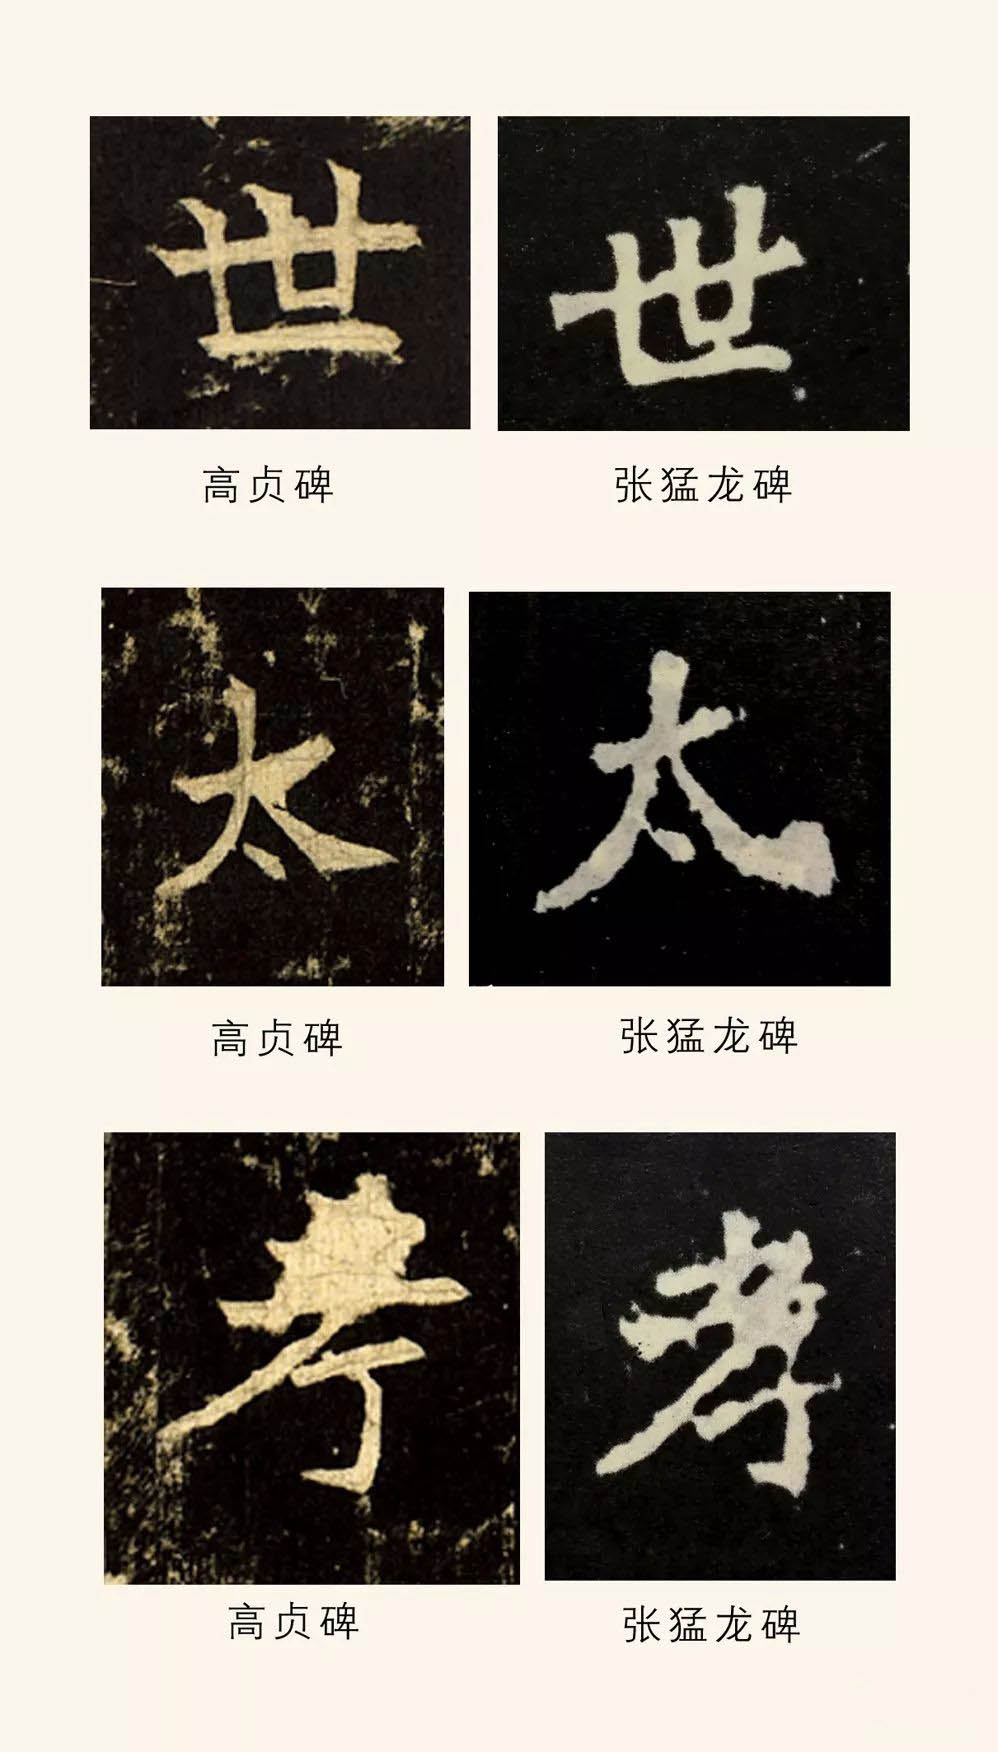 世 世
高贞碑 张猛龙碑
太 太
高贞碑 张猛龙碑
考 考
高贞碑 张猛龙碑